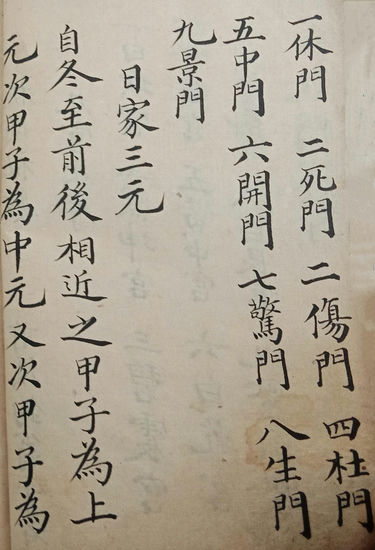 一休門 二死門 二傷門 四杜門
五中門 六開門 七驚門 八生門
九景門
日家三元
自冬至前後相近之甲子為上
元次甲子為中元又次甲子為